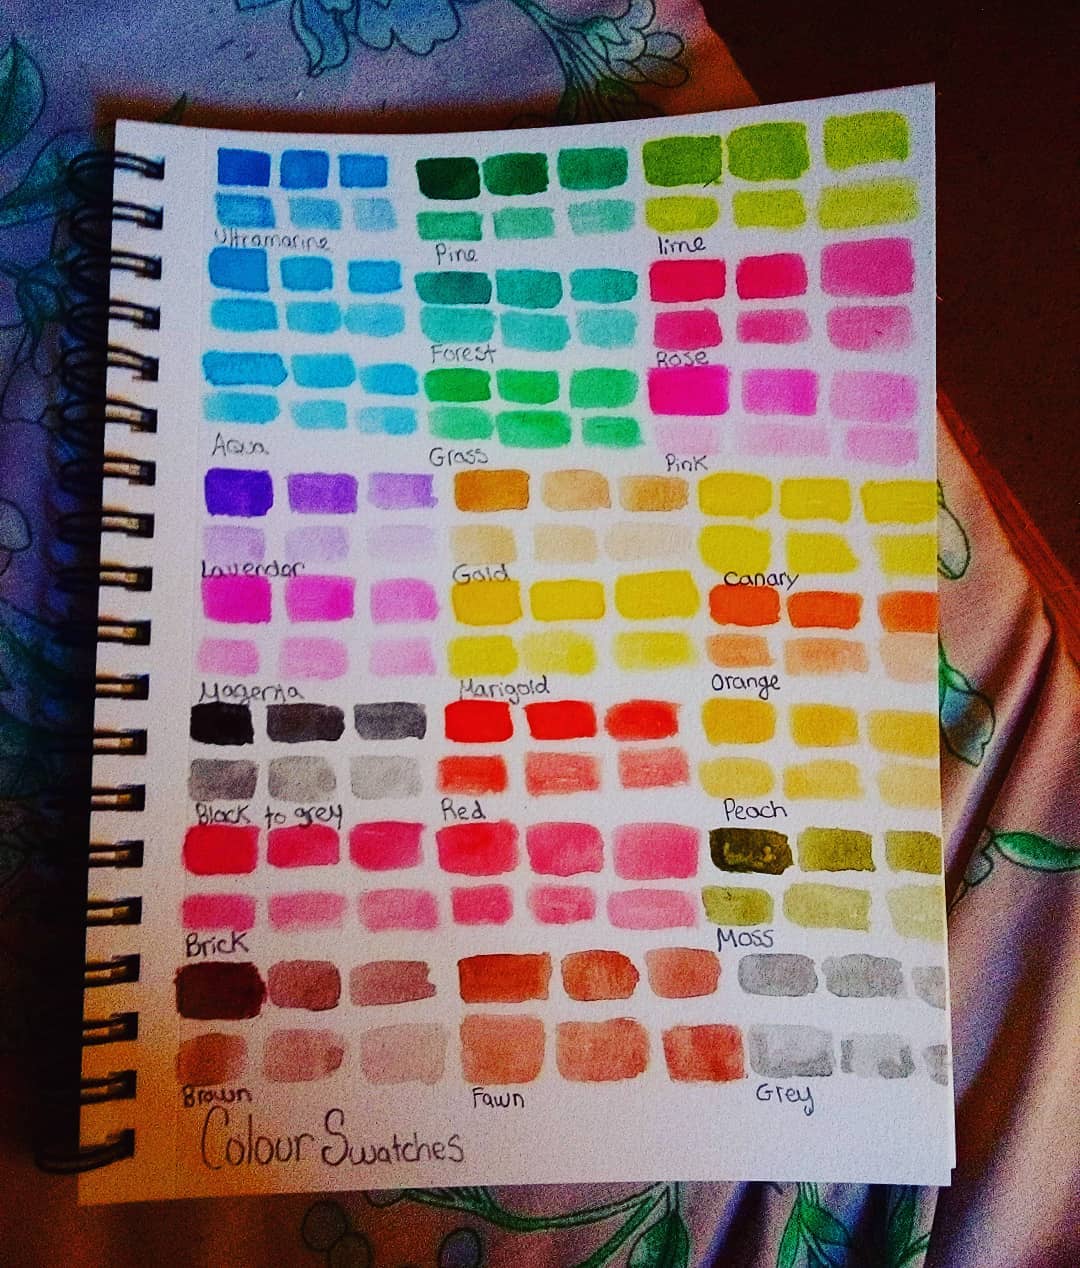 Ultramarine
Pine
lime
Forest
Rose
Aqua
Grass
Pink
Lavendar
Gold
Canary
Magenta
Marigold
Orange
Black to grey
Red
Peach
Brick
Moss
Brown
Fawn
Grey
Colour Swatches